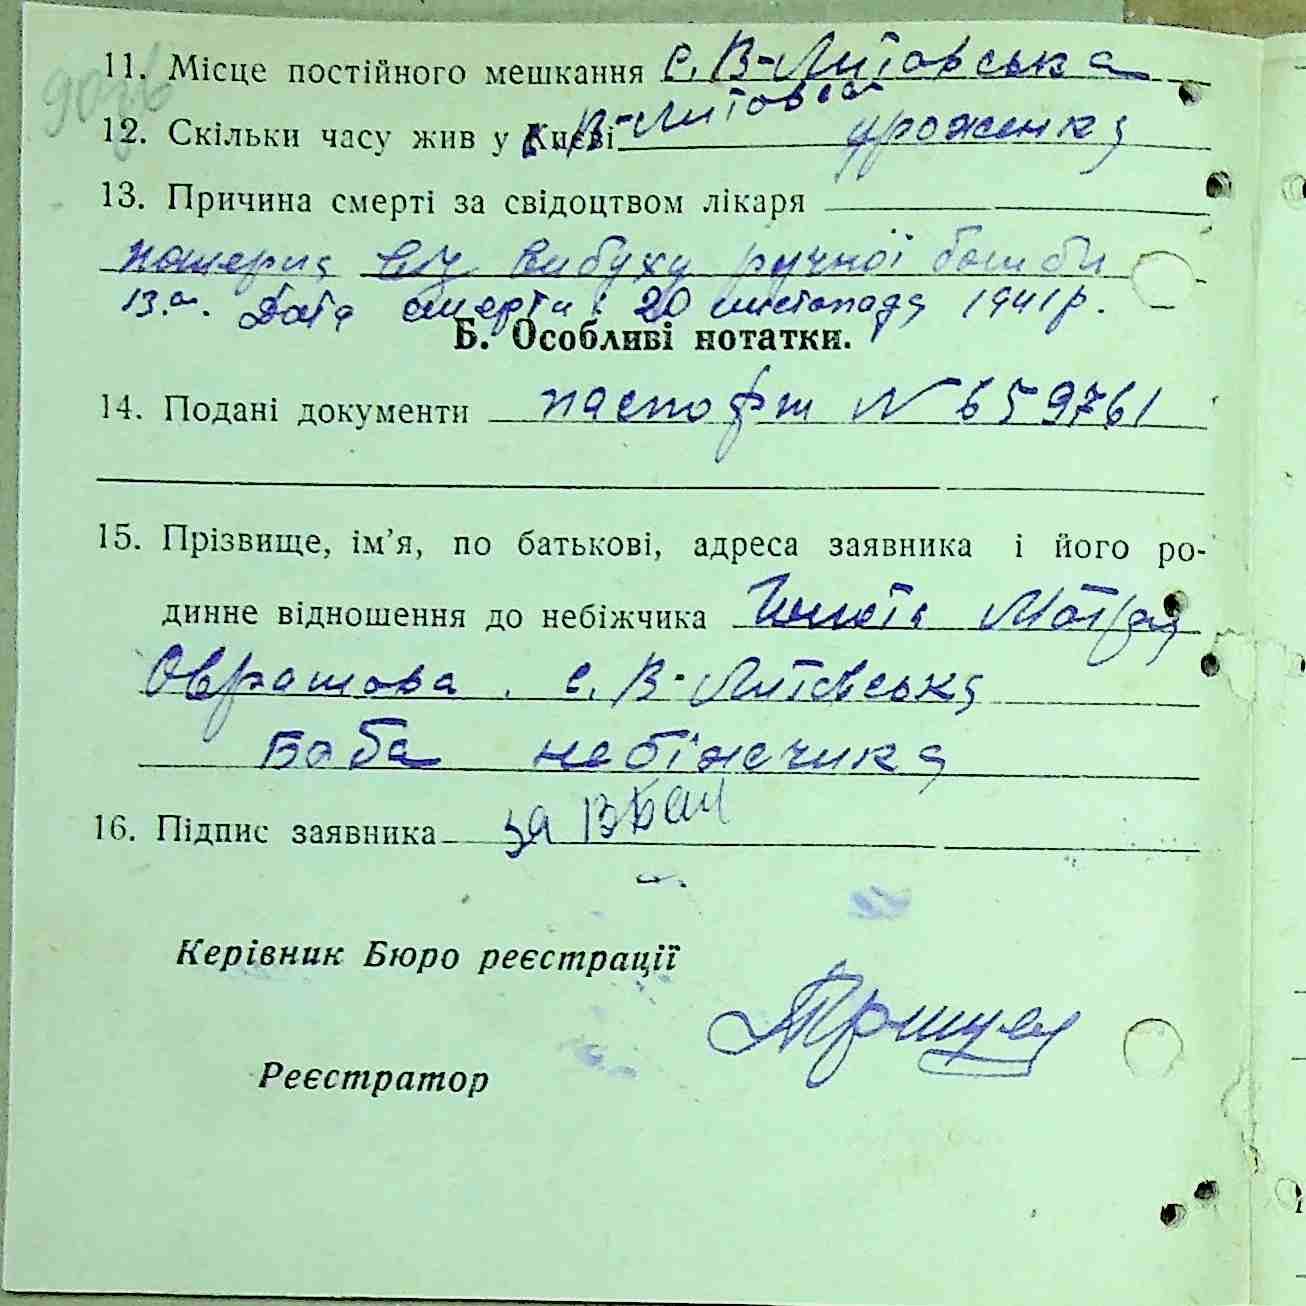 11. Місце постійного мешкання с. В-Литовська
12. Скільки часу жив у Києві В-Литовська уроженка
13. Причина смерті за свідоцтвом лікаря
померла від вибуху ручної бомби
13.а. Дата смерти: 20 листопада 1941 р.
Б. Особливі нотатки.
14. Подані документи паспорт N 659761
15. Прізвище, ім’я, по батькові, адреса заявника і його ро-
динне відношення до небіжчика Мотря
с. В-Литовська
Баба небіжчика
16. Підпис заявника за
Керівник Бюро реєстрації
Реєстратор